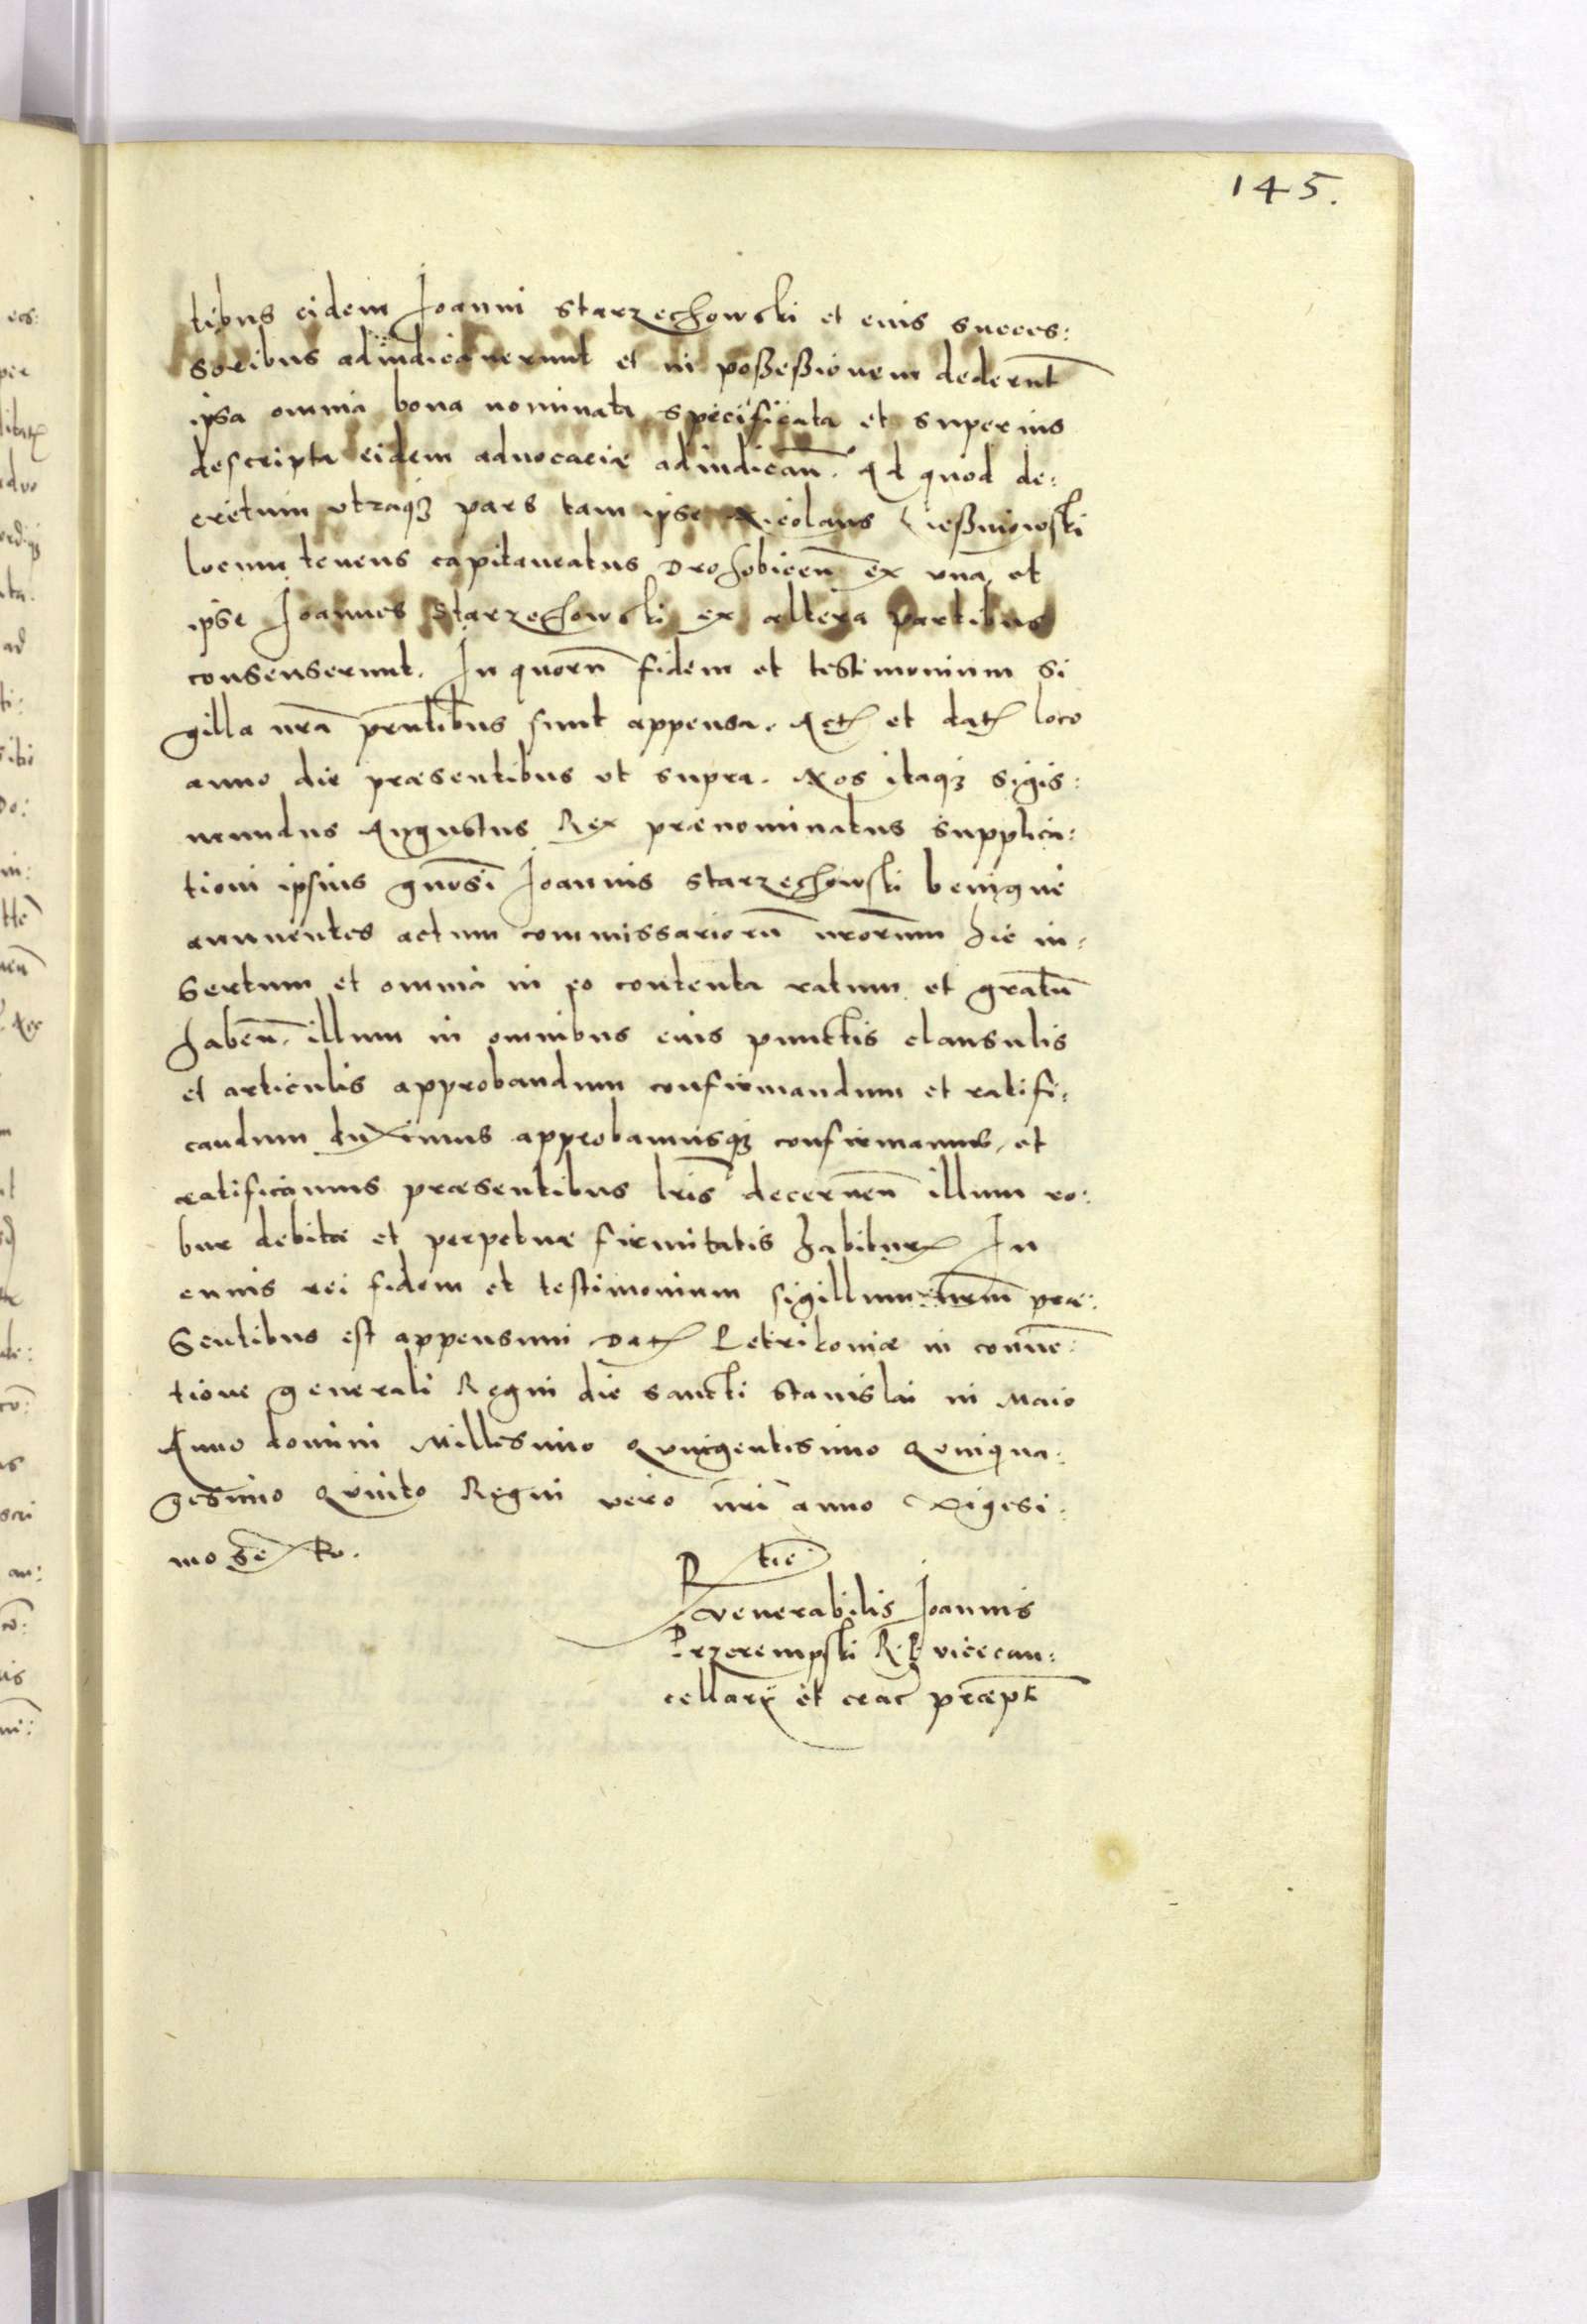 145.
tibus eidem Joanni Starzechowski et eius succes:
soribus adiudicaverunt et in poßeßionem dederunt̄
ipsa omnia bona nominata specificata et superius
descripta eidem advocaciæ adiudican̄. Ad quod de:
cretum utraqȝ pars tam ipse Nicolaus Cießmiowski
locum tenens capitaneatus Drohobicen̄ ex una et
ipse Joannes Starzechowski ex altera partibus
consenserunt. In quorū fidem et testimonium si
gilla nrā pn̄tibus sunt appensa. Act et dat loco
anno die præsentibus ut supra. Nos itaqȝ Sigis:
mundus Augustus Rex prænominatus supplica:
tioni ipsius gnōsi Joannis Starzechowski benigne
annuentes actum commissariorū nrōrum hic in:
sertum et omnia in eo contenta ratum et gratū
haben̄. illum in omnibus eius punctis clausulis
et articulis approbandum confirmandum et ratifi:
candum duximus approbamusqȝ confirmamus et
ratificamus præsentibus lrīs decernen̄ illum ro:
bur debitæ et perpetuæ firmitatis habitur In
cuius rei fidem et testimonium sigillum nrūm præ:
sentibus est appensum Dat Petrikoviæ in conuē:
tione generali Regni die sancti Stanislai in Maio
Anno domini Millesimo Quingentesimo Quinqua:
gesimo Quinto Regni vero nrī anno Vigesi:
mo sexto.
Rtīe
Venerabilis Joannis
Przerempski R. P. vicecan:
cellarii et crac̄ præpt̄